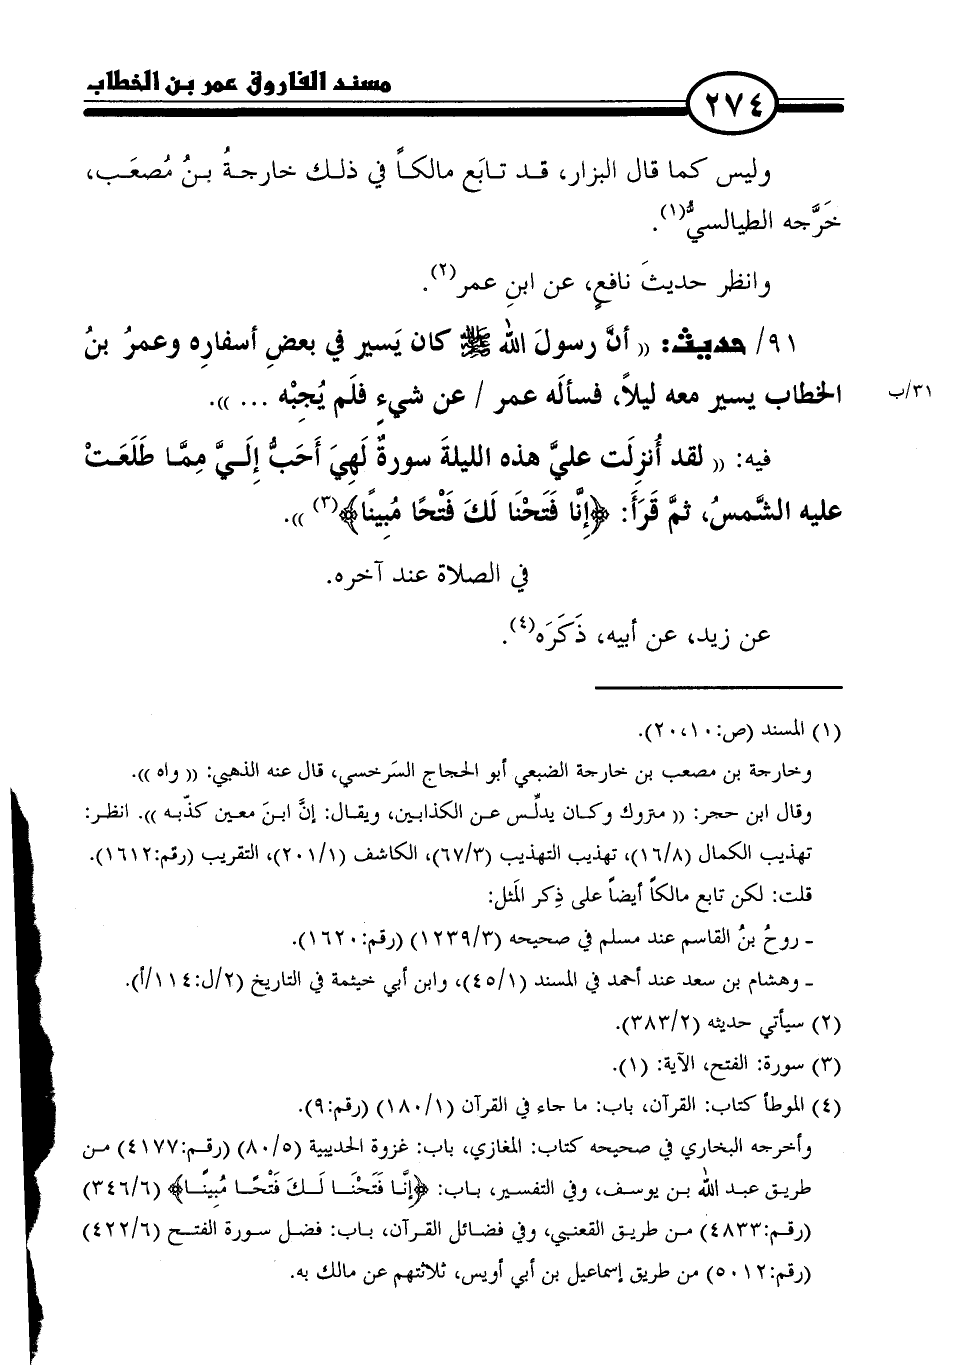 مسند الفاروق عمر بن الخطاب
٢٧٤
وليس كما قال البزار، قد تابَع مالكاً في ذلك خارجةُ بنُ مُصعَب،
خَرَّجه الطيالسيُّ(١).
وانظر حديثَ نافعٍ، عن ابنِ عمر(٢).
٩١/ حديث: « أنَّ رسولَ الله ﷺ كان يَسير في بعضِ أسفارِه وعمرُ بنُ
الخطاب يسير معه ليلاً، فسألَه عمر / عن شيءٍ فلَم يُجبْه ... ».
٣١/ب
فيه: « لقد أُنزِلَت عليَّ هذه الليلةَ سورةٌ لَهِيَ أَحَبُّ إِلَيَّ مِمَّا طَلَعَتْ
عليه الشَّمسُ، ثمَّ قَرَأَ: ﴿إِنَّا فَتَحْنَا لَكَ فَتْحًا مُبِينًا﴾(٣) ».
في الصلاة عند آخره.
عن زيد، عن أبيه، ذَكَرَه(٤).
(١) المسند (ص:١٠،٢٠).
وخارجة بن مصعب بن خارجة الضبعي أبو الحجاج السَرخسي، قال عنه الذهبي: « واه ».
وقال ابن حجر: « متروك وكان يدلِّس عن الكذابين، ويقال: إنَّ ابنَ معين كذّبه ». انظر:
تهذيب الكمال (١٦/٨)، تهذيب التهذيب (٦٧/٣)، الكاشف (٢٠١/١)، التقريب (رقم:١٦١٢).
قلت: لكن تابع مالكاً أيضاً على ذِكر المَثل:
ـ روحُ بنُ القاسم عند مسلم في صحيحه (١٢٣٩/٣) (رقم:١٦٢٠).
ـ وهشام بن سعد عند أحمد في المسند (٤٥/١)، وابن أبي خيثمة في التاريخ (٢/ل:١١٤/أ).
(٢) سيأتي حديثه (٣٨٣/٢).
(٣) سورة: الفتح، الآية: (١).
(٤) الموطأ كتاب: القرآن، باب: ما جاء في القرآن (١٨٠/١) (رقم:٩).
وأخرجه البخاري في صحيحه كتاب: المغازي، باب: غزوة الحديبية (٨٠/٥) (رقم:٤١٧٧) من
طريق عبد الله بن يوسف، وفي التفسير، باب: ﴿إِنَّا فَتَحْنَا لَكَ فَتْحًا مُبِينًا﴾ (٣٤٦/٦)
(رقم:٤٨٣٣) من طريق القعنبي، وفي فضائل القرآن، باب: فضل سورة الفتح (٤٢٢/٦)
(رقم:٥٠١٢) من طريق إسماعيل بن أبي أويس، ثلاثتهم عن مالك به.